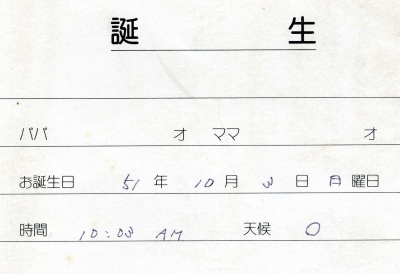 誕 生
パパ 才 ママ 才
お誕生日 51 年 10 月 3 日 月 曜日
時間 10:03 AM 天候 〇